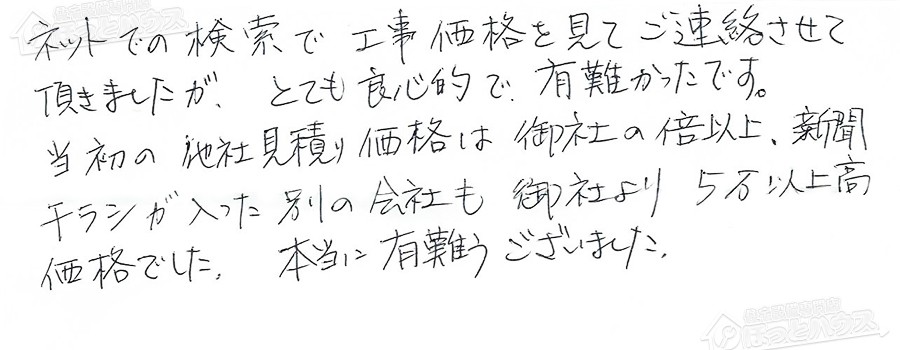 ネットでの検索で工事価格を見てご連絡させて
頂きましたが、とても良心的で、有難かったです。
当初の他社見積り価格は御社の倍以上、新聞
チラシが入った別の会社も御社より5万以上高
価格でした。本当に有難うございました。